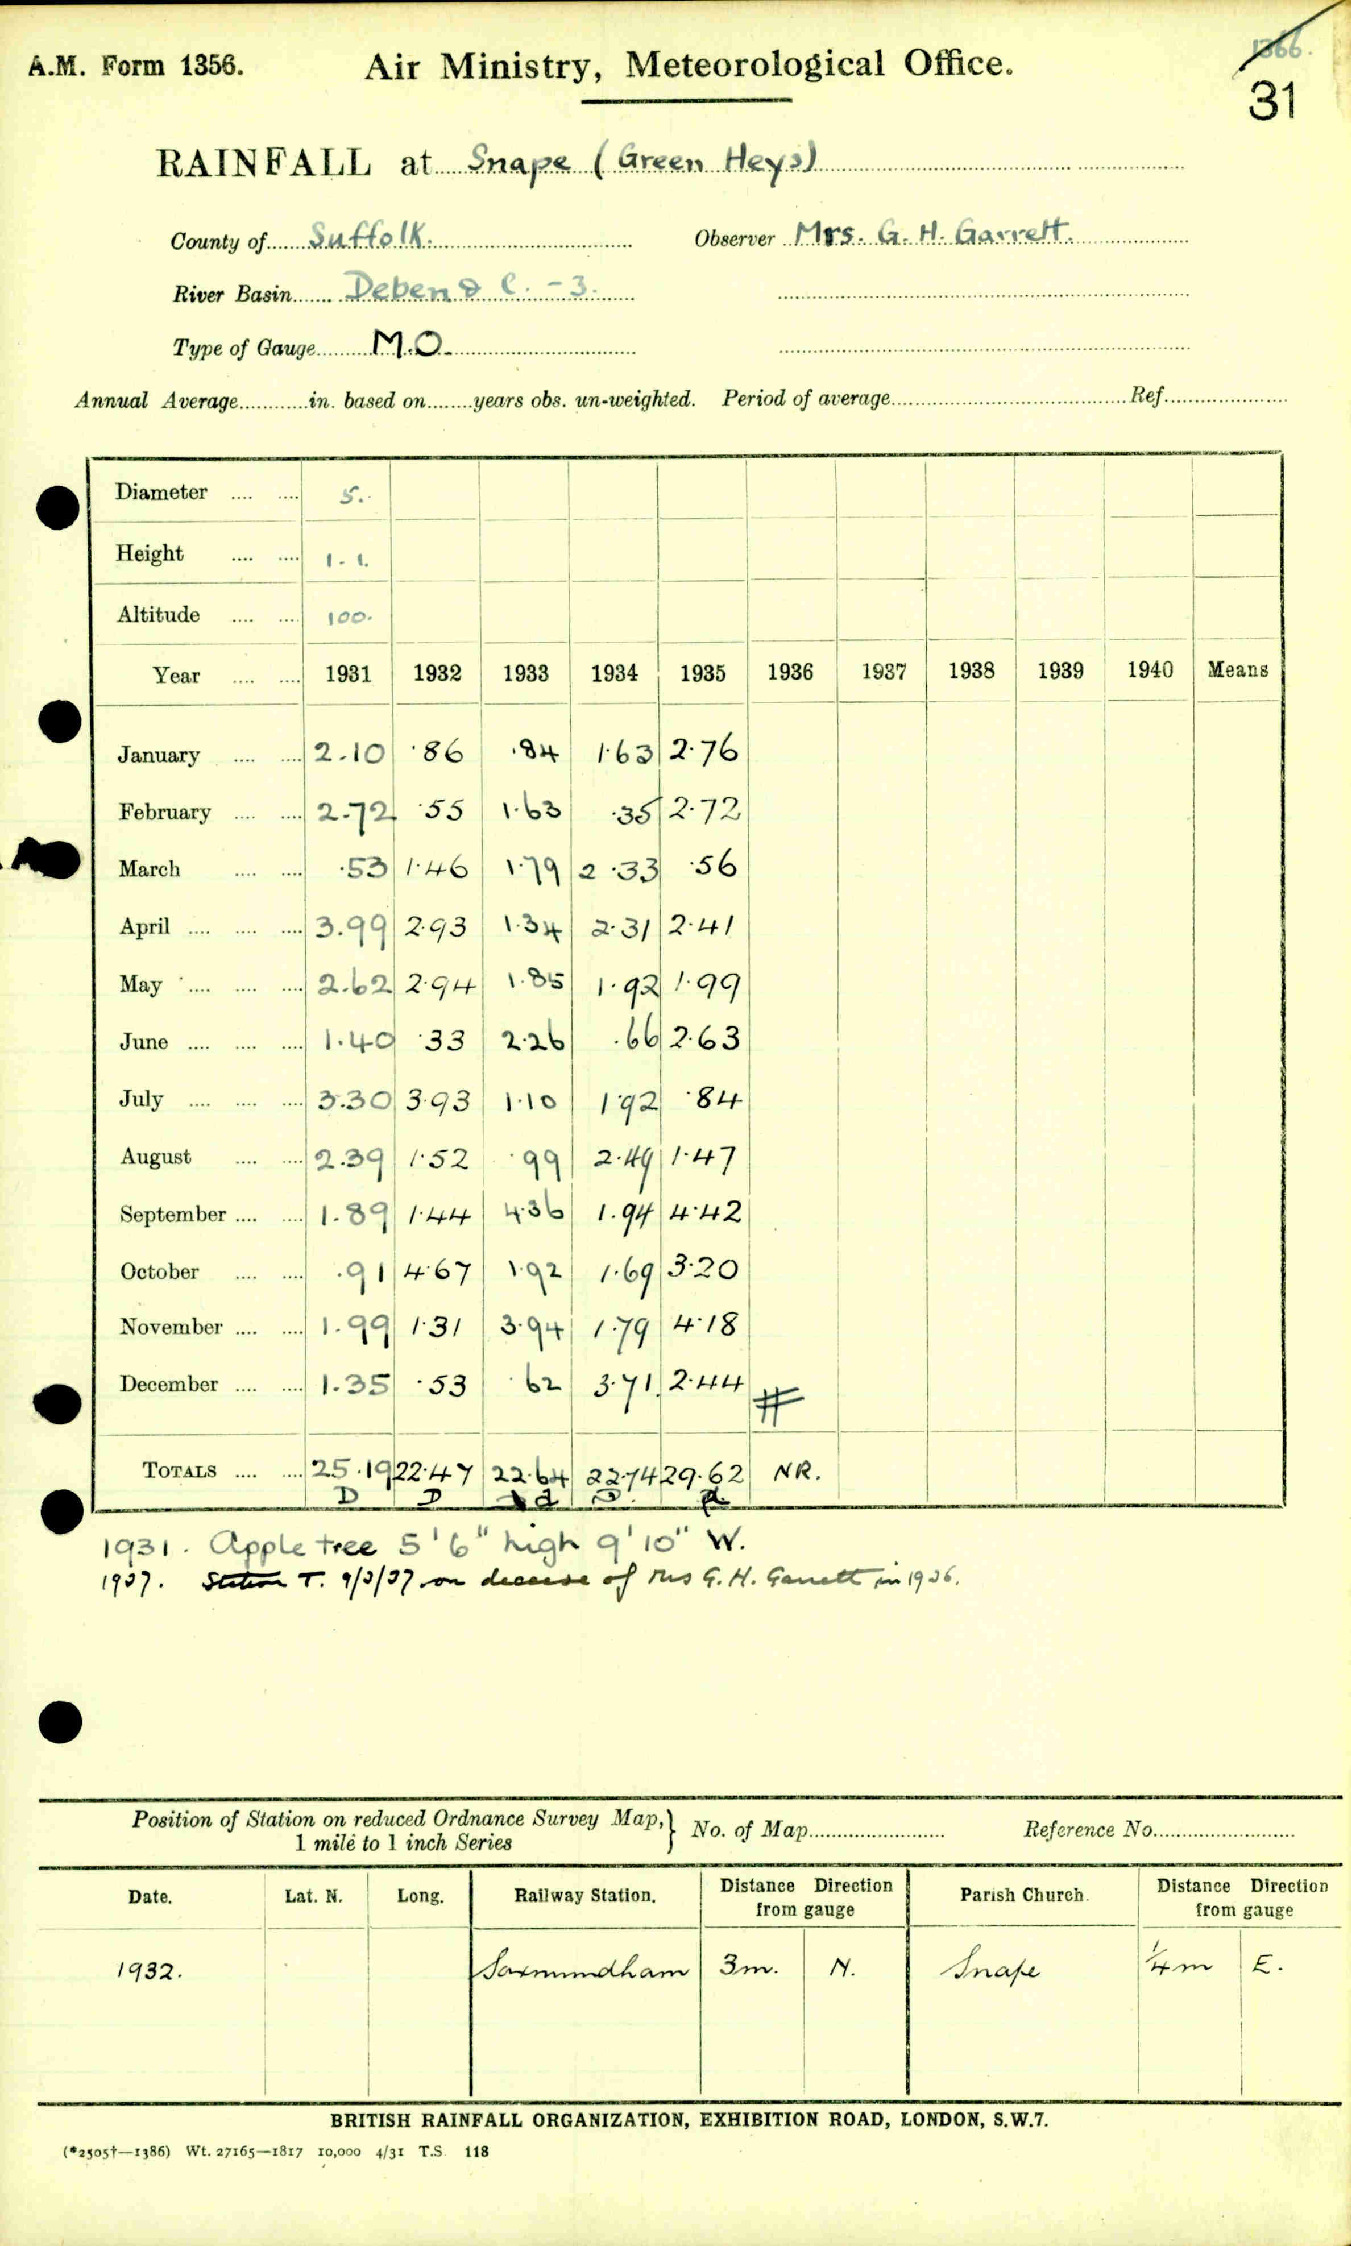 A.M. Form 1356.
Air Ministry, Meteorological Office.
1366.
31
RAINFALL at Snape (Green Heys)
County of Suffolk. Observer Mrs. G. H. Garrett.
River Basin Deben & C. - 3.
Type of Gauge M.O.
Annual Average in. based on years obs. un-weighted. Period of average Ref.
Diameter 5.
Height 1 - 1.
Altitude 100.
Year 1931 1932 1933 1934 1935 1936 1937 1938 1939 1940 Means
January 2.10 .86 .84 1.63 2.76
February 2.72 .55 1.63 .35 2.72
March .53 1.46 1.79 2.33 .56
April 3.99 2.93 1.34 2.31 2.41
May 2.62 2.94 1.85 1.92 1.99
June 1.40 .33 2.26 .66 2.63
July 3.30 3.93 1.10 1.92 .84
August 2.39 1.52 .99 2.49 1.47
September 1.89 1.44 4.36 1.94 4.42
October .91 4.67 1.92 1.69 3.20
November 1.99 1.31 3.94 1.79 4.18
December 1.35 .53 .62 3.71 2.44
TOTALS 25.19 22.47 22.64 22.74 29.62 NR.
D D d D
1931. Apple tree 5'6" high 9'10" W.
1937. Station T. 9/3/37 on decease of Mrs G. H. Garrett in 1936.
Position of Station on reduced Ordnance Survey Map, 1 mile to 1 inch Series } No. of Map Reference No.
Date. Lat. N. Long. Railway Station. Distance Direction from gauge Parish Church. Distance Direction from gauge
1932. Saxmundham 3m. N. Snape 1/4 m E.
BRITISH RAINFALL ORGANIZATION, EXHIBITION ROAD, LONDON, S.W.7.
(*2505†—1386) Wt. 27165—1817 10,000 4/31 T.S. 118